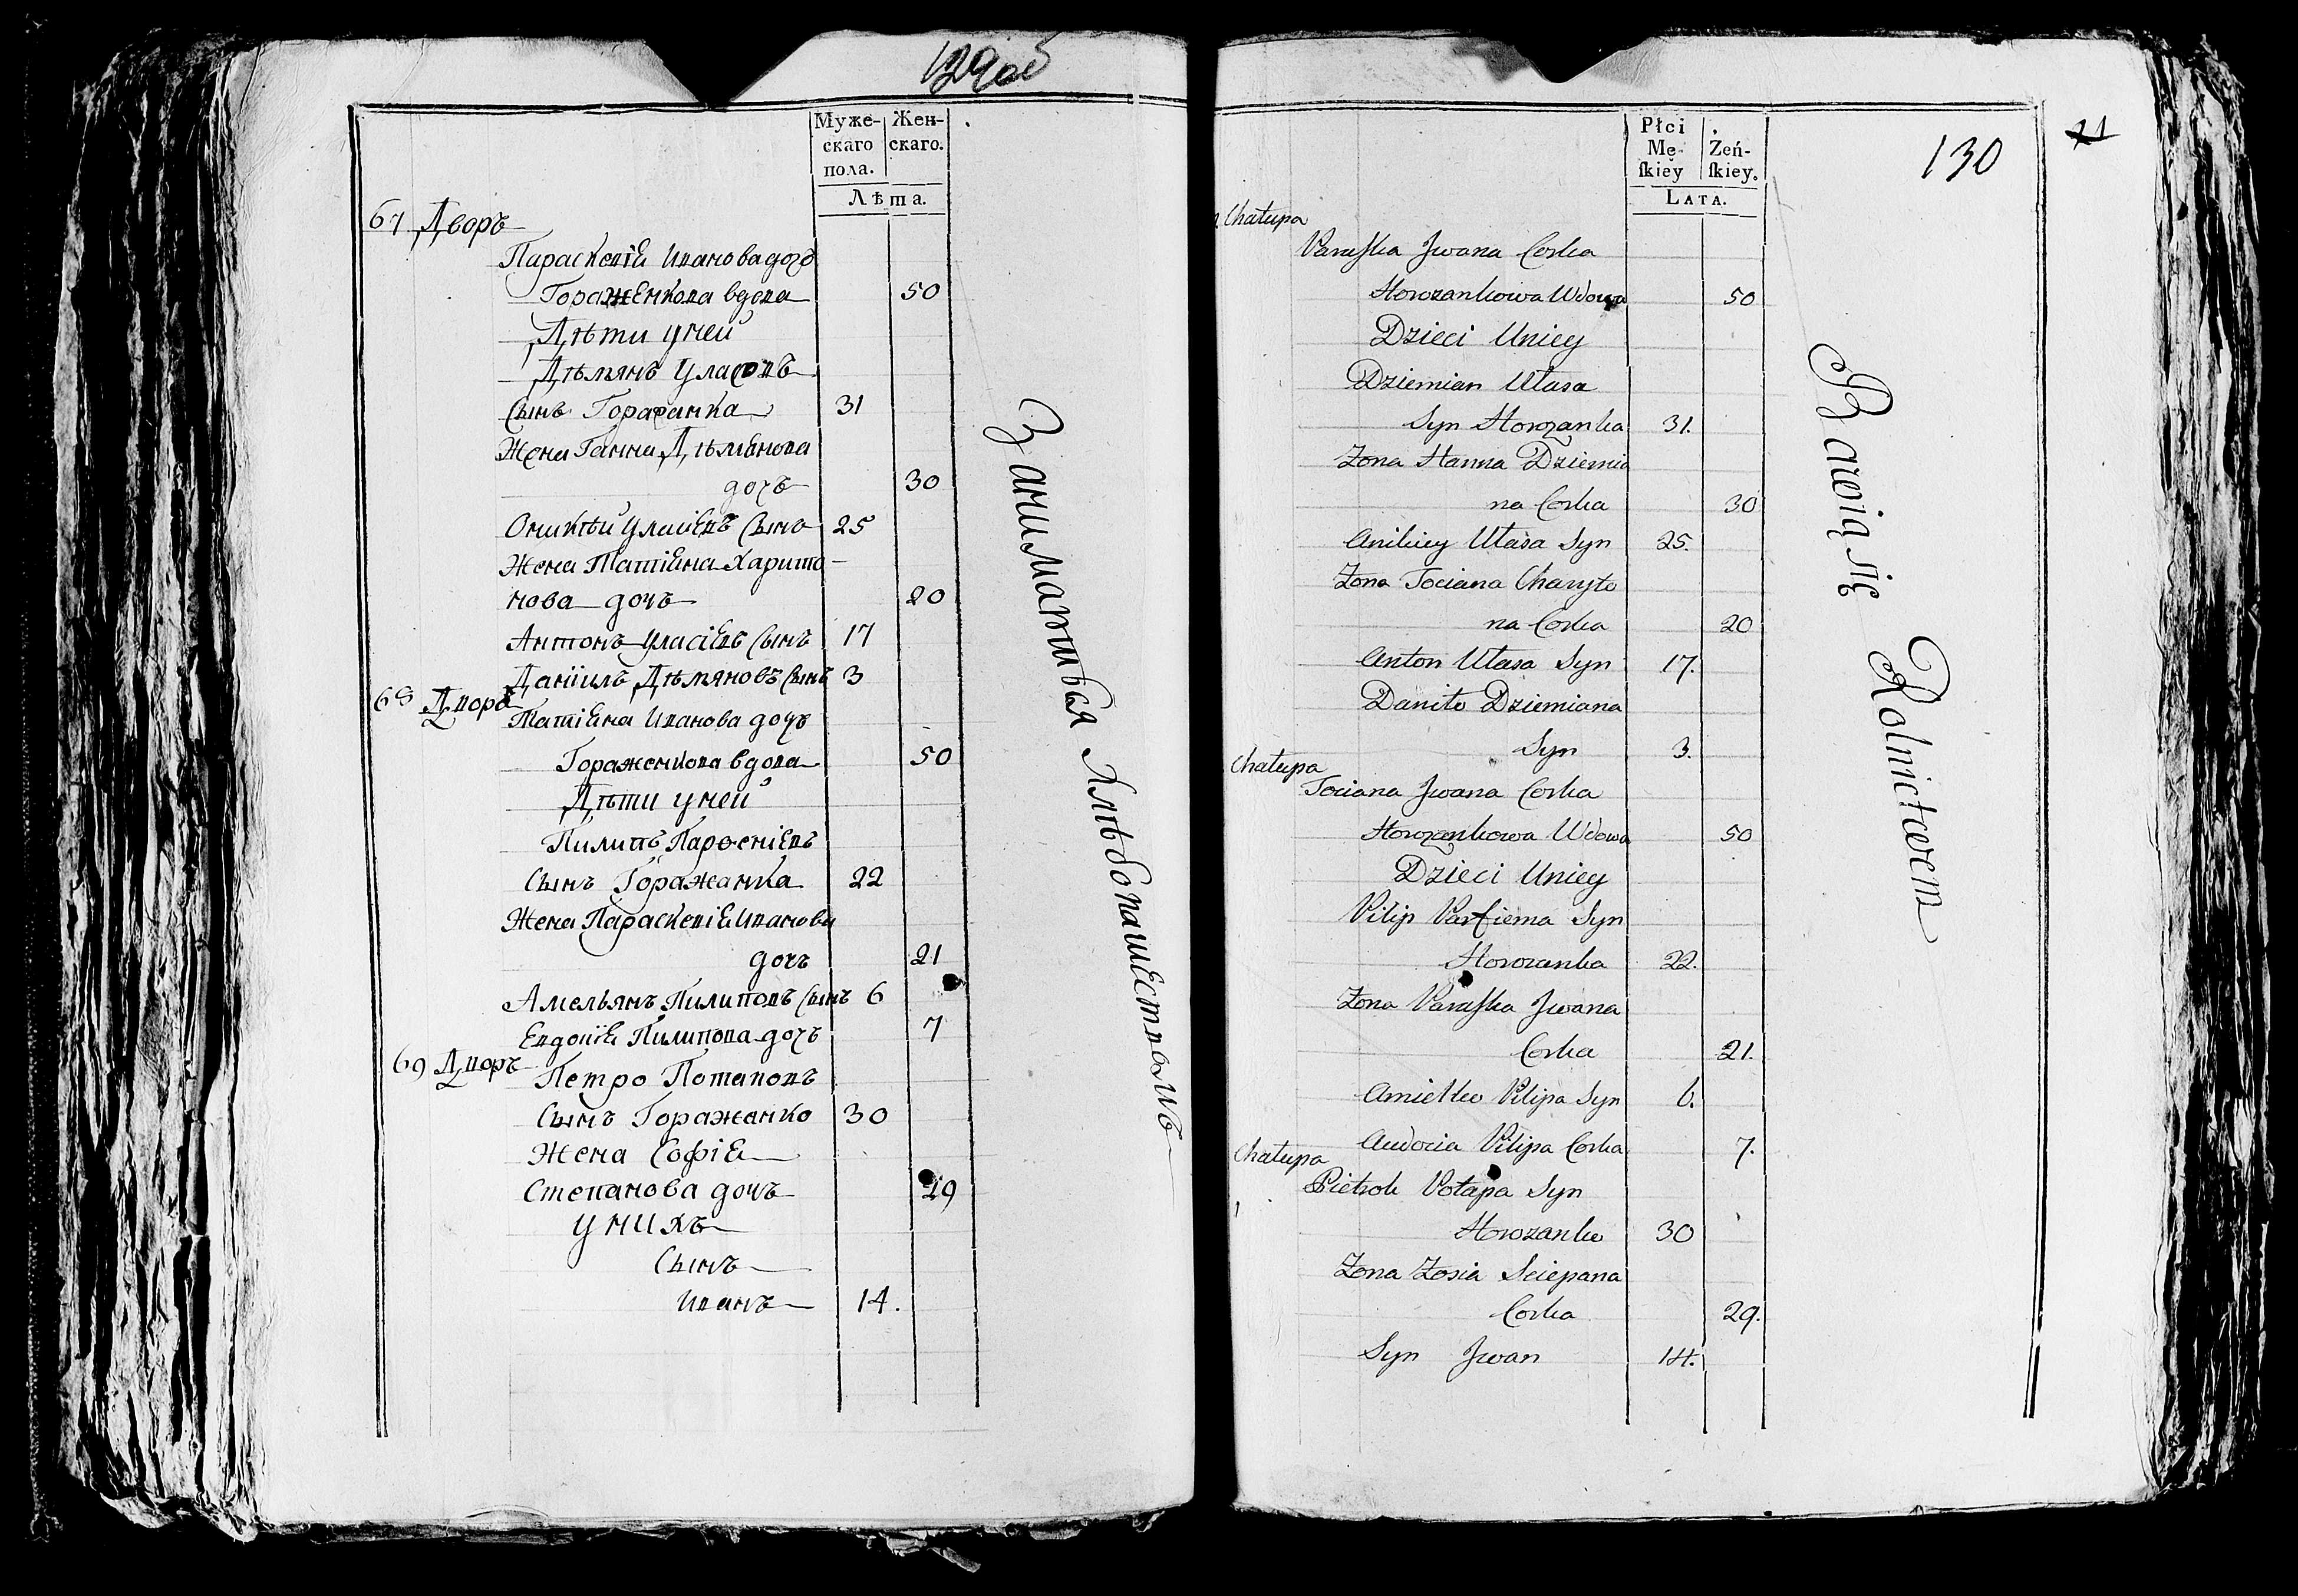 129об
Муже-
скаго
пола.
Жен-
скаго.
Лѣта.
67 Дворъ
Параскевiя Иванова дочь
Горажонкова вдова
50
Дѣти у ней
Дѣмянъ Уласовъ
Сынъ Горажанка 31
Жена Ганна Дѣмянова
дочь 30
Оникѣй Уласiевъ Сынъ 25
Жена Татiяна Харито-
нова дочь 20
Антонъ Уласiевъ Сынъ 17
Данiилъ Дѣмяновъ Сынъ 3
68 Дворъ
Татiяна Иванова дочь
Горажонкова вдова 50
Дѣти у ней
Пилипъ Парѳенiевъ
Сынъ Горажанка 22
Жена Параскевiя Иванова
дочь 21
Амельянъ Пилиповъ Сынъ 6
Евдокiя Пилипова дочь 7
69 Дворъ
Петро Потаповъ
Сынъ Горажанко 30
Жена Софiя
Степанова дочь 29
У нихъ
Сынъ
Иванъ 14.
Занимаются хлѣбопашествомъ
Płci
Mę-
skiey
Żeń-
skiey.
Lata.
130
21
Chałupa
Paraska Jwana Corka
Horozankowa Wdowa 50
Dzieci Uniey
Dziemian Ułasa
Syn Horozanka 31.
Zona Hanna Dziemia
na Corka 30
Anikiey Ułasa Syn 25.
Zona Tociana Charyto
na Corka 20
Anton Ułasa Syn 17.
Daniło Dziemiana
Syn 3.
Chałupa
Tociana Jwana Corka
Horozankowa Wdowa 50
Dzieci Uniey
Pilip Parfiema Syn
Horozanka 22.
Zona Paraska Jwana
Corka 21.
Amiełko Pilipa Syn 6.
Audocia Pilipa Corka 7.
Chałupa
Pietrok Potapa Syn
Horozanko 30
Zona Zosia Sciepana
Corka 29.
Syn Jwan 14.
Bawią się Rolnictwem